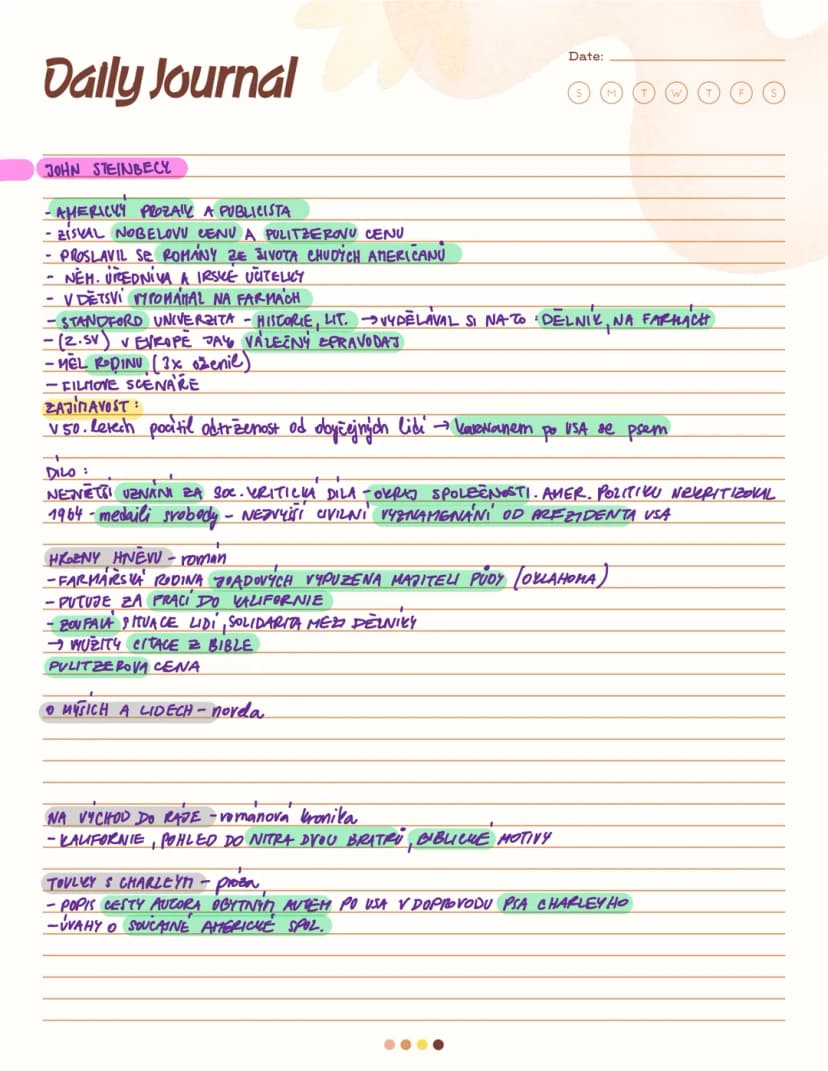 Daily Journal
Date:
S M T W T F S
JOHN STEINBECK
- AMERICKÝ PROZAIK A PUBLICISTA
- ZÍSKAL NOBELOVU CENU A PULITZEROVU CENU
- PROSLAVIL SE ROMÁNY ZE ŽIVOTA CHUDÝCH AMERIČANŮ
- NĚM. ÚŘEDNÍKA A IRSKÉ UČITELKY
- V DĚTSVÍ VYPOMÁHAL NA FARMÁCH
- STANDFORD UNIVERZITA - HISTORIE, LIT. → VYDĚLÁVAL SI NA TO : DĚLNÍK, NA FARMÁCH
- (2.SV) V EVROPĚ JAKO VÁLEČNÝ ZPRAVODAJ
- MĚL RODINU (3x oženil)
- FILMOVÉ SCÉNÁŘE
ZAJÍMAVOST :
V 50. letech pocítil odtrženost od obyčejných lidí → karavanem po USA se psem
DÍLO :
NEJVĚTŠÍ UZNÁNÍ ZA SOC. KRITICKÁ DÍLA - OKRAJ SPOLEČNOSTI. AMER. POLITIKU NEKRITIZOVAL
1964 - medaili svobody - NEJVYŠŠÍ CIVILNÍ VYZNAMENÁNÍ OD PREZIDENTA USA
HROZNY HNĚVU - román
- FARMÁŘSKÁ RODINA JOADOVÝCH VYPUZENA MAJITELI PŮDY (OKLAHOMA)
- PUTUJE ZA PRACÍ DO KALIFORNIE
- ZOUFALÁ SITUACE LIDÍ, SOLIDARITA MEZI DĚLNÍKY
→ VYUŽITY CITACE Z BIBLE
PULITZEROVA CENA
O MYŠÍCH A LIDECH - novela
NA VÝCHOD OD RÁJE - románová kronika
- KALIFORNIE, POHLED DO NITRA DVOU BRATRŮ, BIBLICKÉ MOTIVY
TOULKY S CHARLEYM - próza
- POPIS CESTY AUTORA OBYTNÝM AUTEM PO USA V DOPROVODU PSA CHARLEYHO
- ÚVAHY O SOUČASNÉ AMERICKÉ SPOL.